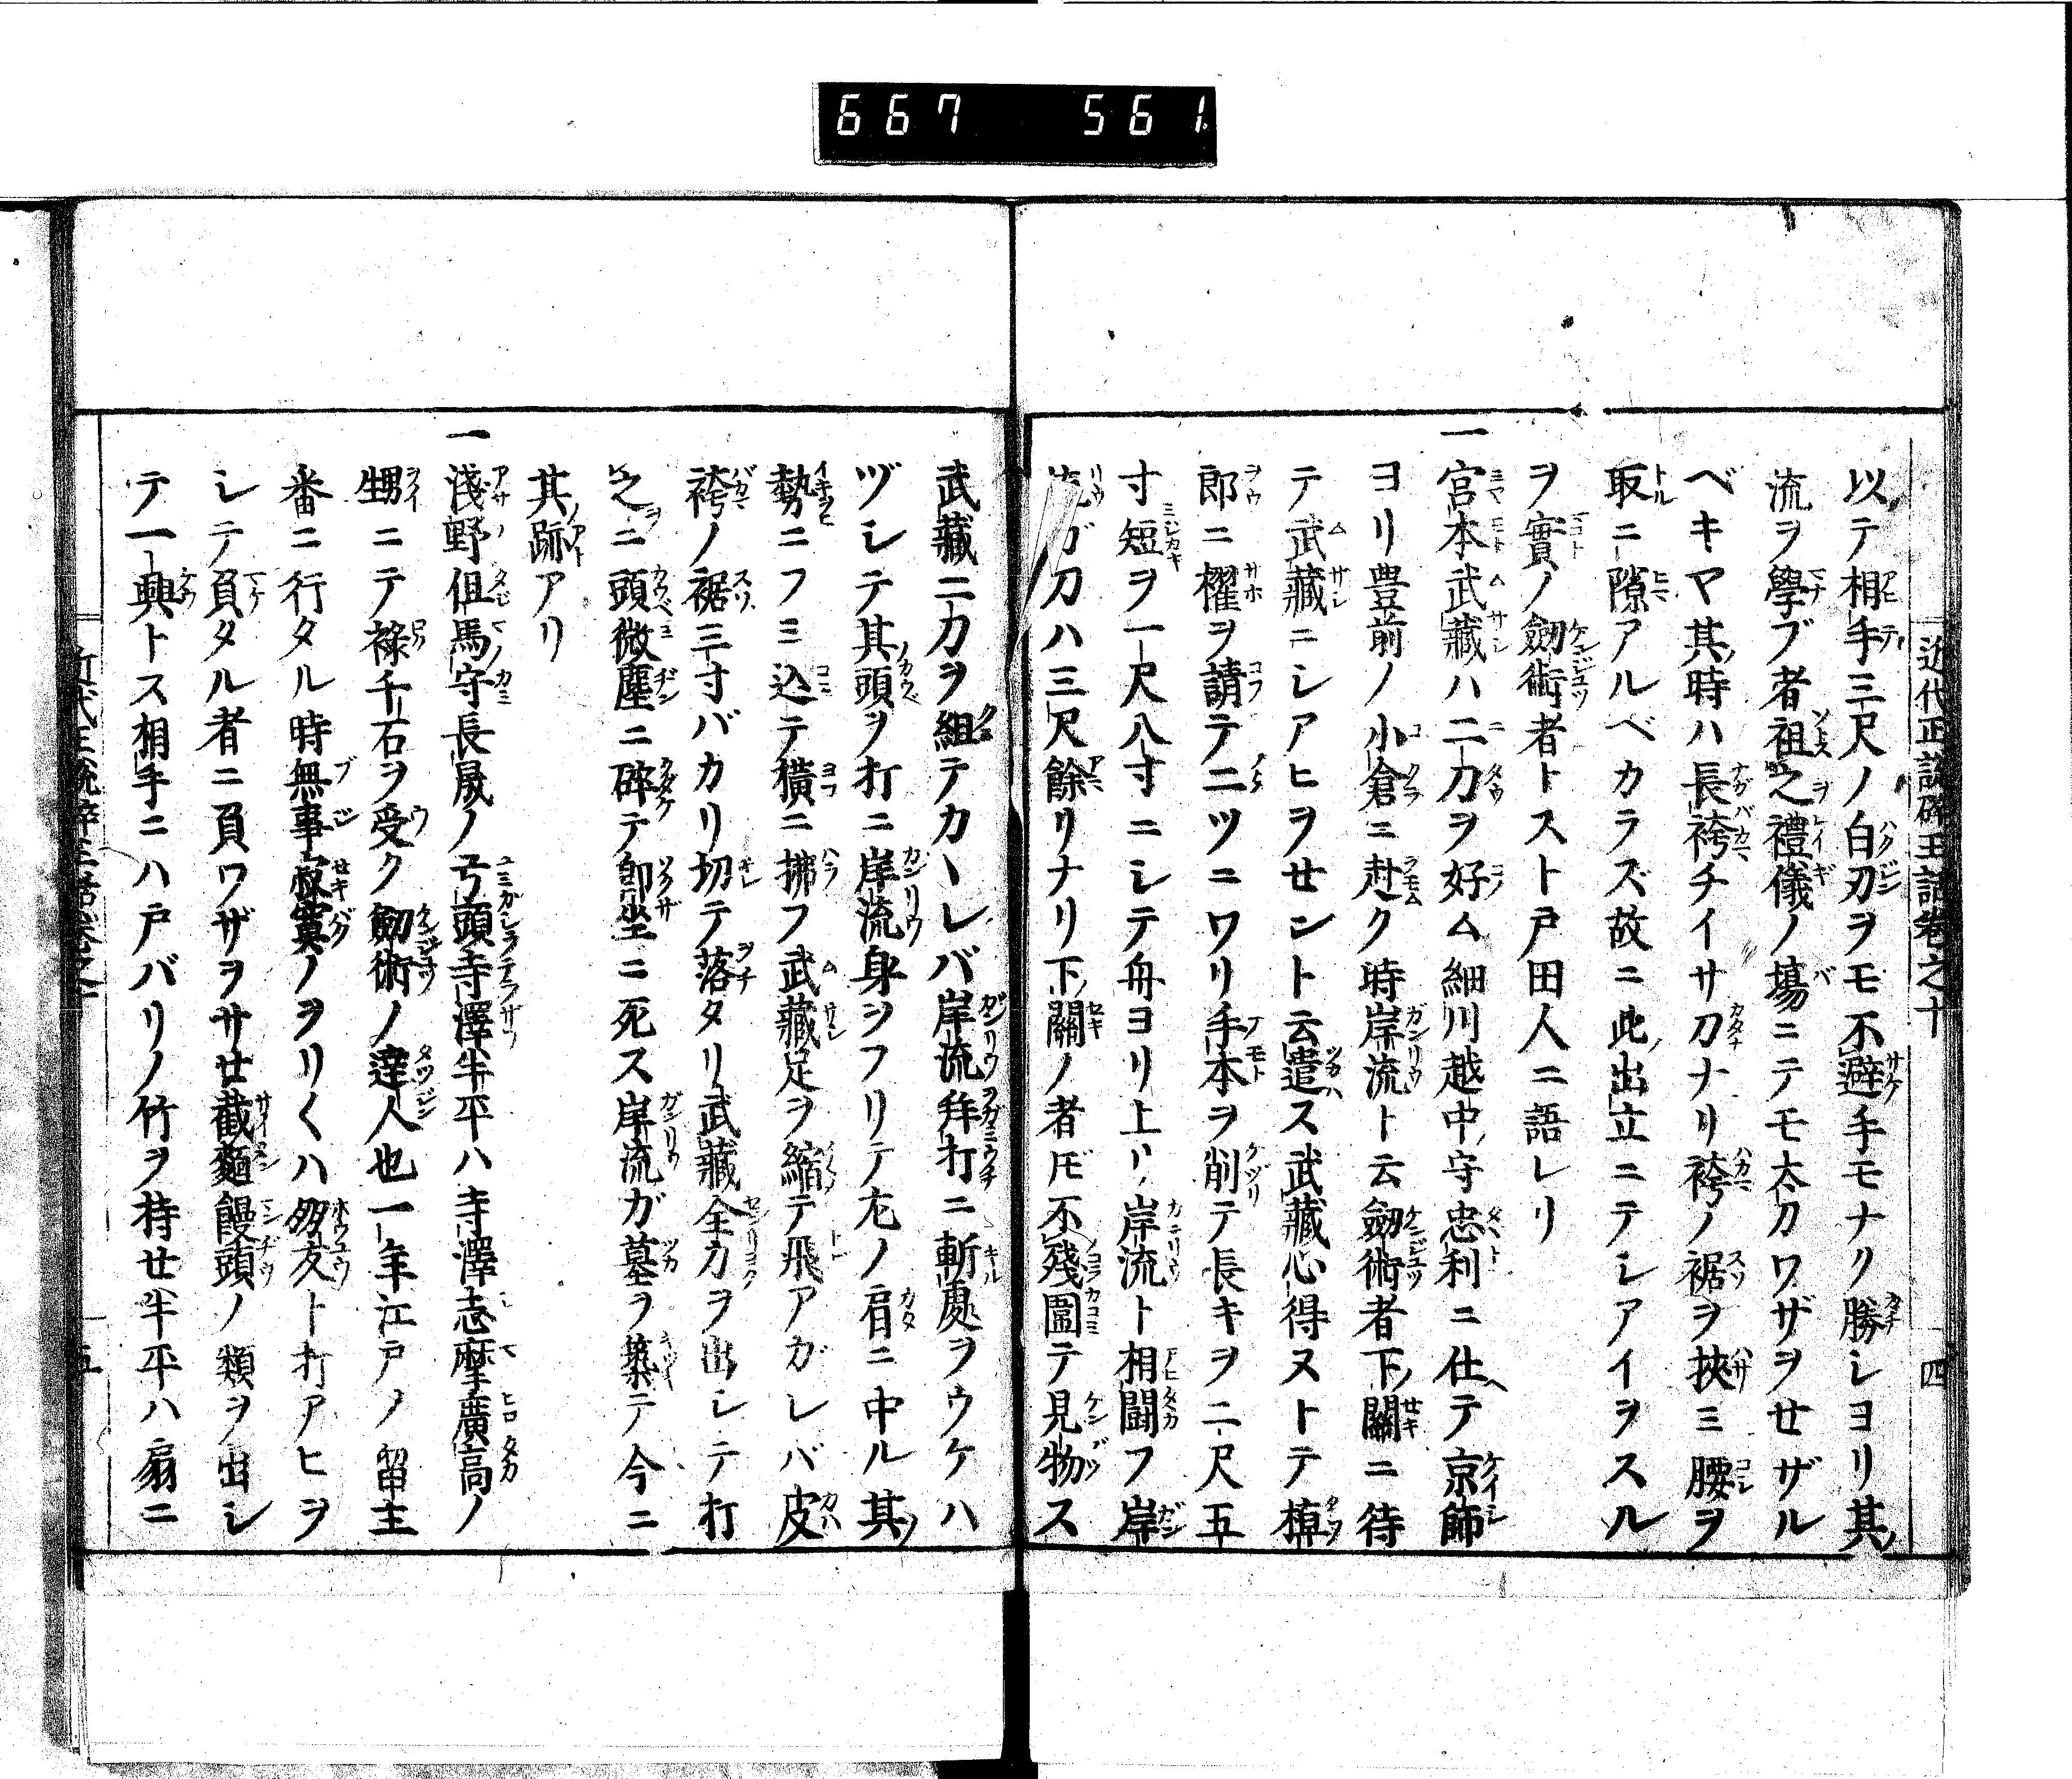 667 561
近代正説碎玉話卷之十 四
以テ相手三尺ノ白刃ヲモ不避手モナク勝シヨリ其
流ヲ學ブ者祖之禮儀ノ塲ニテモ太刀ワザヲセザル
ベキヤ其時ハ長袴チイサ刀ナリ袴ノ裾ヲ挾ミ腰ヲ
取ニ隙アルベカラズ故ニ此出立ニテシアイヲスル
ヲ實ノ劔術者トスト戸田人ニ語レリ
一宮本武藏ハ二刀ヲ好ム細川越中守忠利ニ仕テ京師
ヨリ豊前ノ小倉ニ赴ク時岸流ト云劔術者下關ニ待
テ武藏ニシアヒヲせント云遣ス武藏心得ヌトテ棹
郎ニ櫂ヲ請テ二ツニワリ手本ヲ削テ長キヲ二尺五
寸短ヲ一尺八寸ニシテ舟ヨリ上リ岸流ト相闘フ岸
流ガ刀ハ三尺餘リナリ下關ノ者ドモ不殘圍テ見物ス
武藏二刀ヲ組テカヽレバ岸流拜打ニ斬處ヲウケハ
ヅシテ其頭ヲ打ニ岸流身ヲフリテ左ノ肩ニ中ル其
勢ニフミ込テ橫ニ拂フ武藏足ヲ縮テ飛アガレバ皮
袴ノ裾三寸バカリ切テ落タリ武藏全力ヲ出シテ打
之ニ頭微塵ニ碎テ即坐ニ死ス岸流ガ墓ヲ築テ今ニ
其跡アリ
一淺野但馬守長晟ノ弓頭寺澤半平ハ寺澤志摩廣高ノ
甥ニテ祿千石ヲ受ク劔術ノ達人也一年江戸ノ留主
番ニ行タル時無事寂寞ノヲリ〱ハ朋友ト打アヒヲ
シテ負タル者ニ負ワザヲサせ截麵饅頭ノ類ヲ出シ
テ一興トス相手ニハ戸バリノ竹ヲ持せ半平ハ扇ニ
近代正説碎玉話卷之十 五